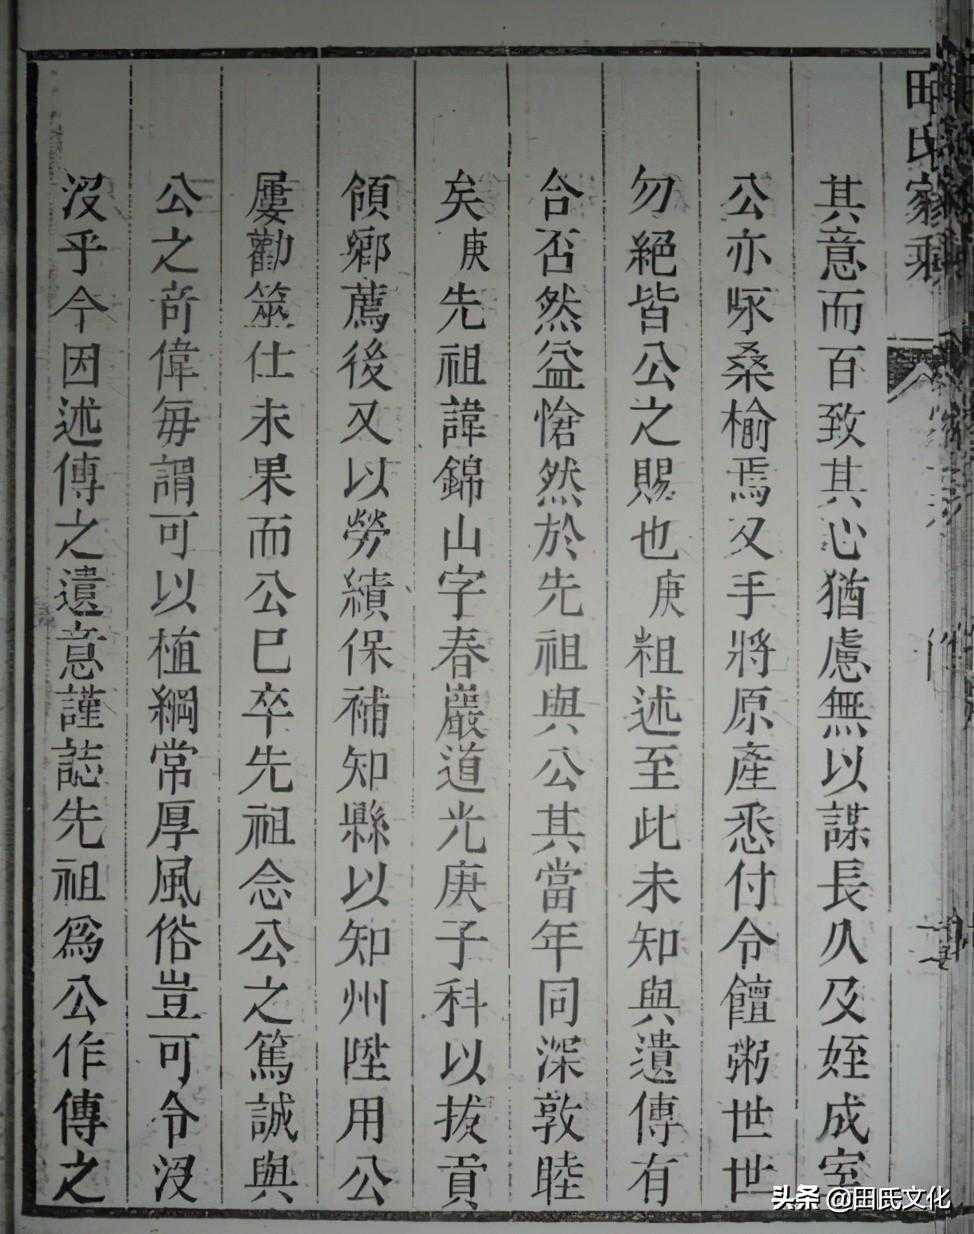 田氏家乘
其意而百致其心猶慮無以謀長久及姪成室
公亦啄桑榆焉又手將原產悉付令饘粥世世
勿絕皆公之賜也庚粗述至此未知與遺傳有
合否然益愴然於先祖與公其當年同深敦睦
矣庚先祖諱錦山字春巖道光庚子科以拔貢
領鄉薦後又以勞績保補知縣以知州陞用公
屢勸筮仕未果而公巳卒先祖念公之篤誠與
公之奇偉每謂可以植綱常厚風俗豈可令沒
沒乎今因述傳之遺意謹誌先祖爲公作傳之
头条 @田氏文化